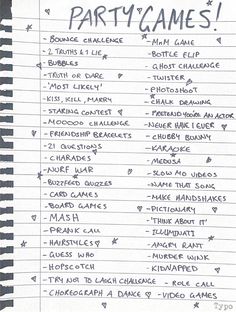 PARTY GAMES!
- BOUNCE CHALLENGE
- 2 TRUTHS & 1 LIE
- BUBBLES
- TRUTH OR DARE
- 'MOST LIKELY'
- KISS, KILL, MARRY
- STARING CONTEST
- MOOOOO CHALLENGE
- FRIENDSHIP BRACELETS
- 21 QUESTIONS
- CHARADES
- NURF WAR
- BUZZFEED QUIZES
- CARD GAMES
- BOARD GAMES
- MASH
- PRANK CALL
- HAIRSTYLES
- GUESS WHO
- HOPSCOTCH
- TRY NOT TO LAUGH CHALLENGE
- CHOREOGRAPH A DANCE
- MNM GAME
- BOTTLE FLIP
- GHOST CHALLENGE
- TWISTER
- PHOTOSHOOT
- CHALK DRAWING
- PRETEND YOU'RE AN ACTOR
- NEVER HAVE I EVER
- CHUBBY BUNNY
- KARAOKE
- MEDUSA
- SLOW MO VIDEOS
- NAME THAT SONG
- MAKE HANDSHAKES
- PICTIONARY
- 'THINK ABOUT IT'
- ILLUMINATI
- ANGRY RANT
- MURDER WINK
- KIDNAPPED
- ROLE CALL
- VIDEO GAMES
Typo